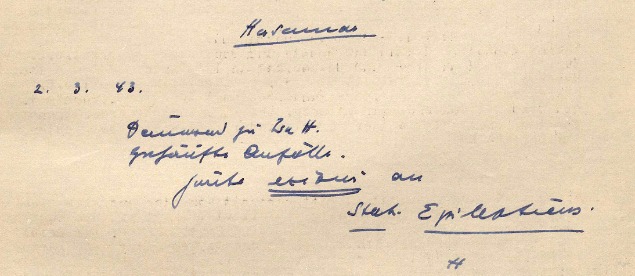 Hadamar
2. 3. 43.
Dauernd
Gehäufte Anfälle.
heute exitus an
Stat. Epilepticus.